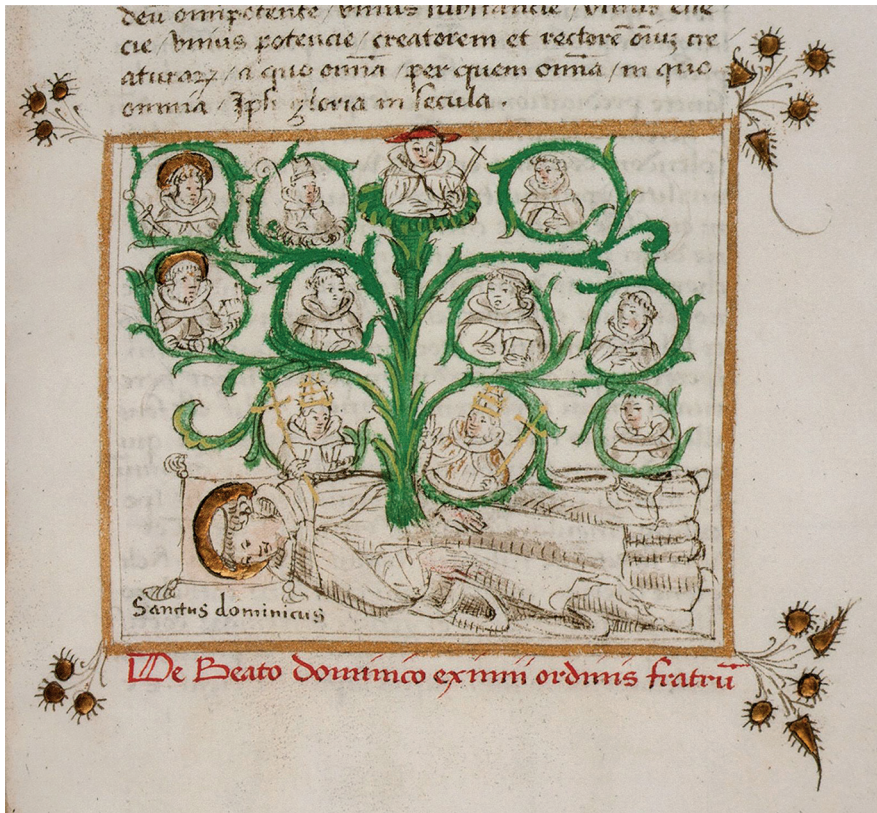 deū om̄ipotente / vnius substancie / vnius esse
cie / vnius potencie / creatorem et rectorē oīuꝫ cre
aturaꝝ / a quo om̄ia / per quem om̄ia / in quo
omnia / Ip̄i gloria in secula .
Sanctus dominicus
De Beato dominico eximii ordinis fratrū